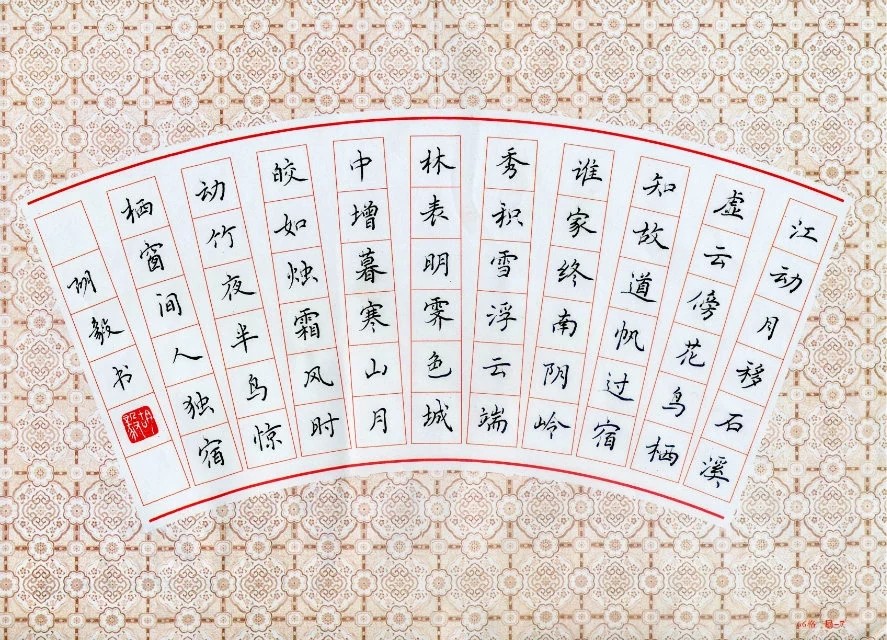 江动月移石溪
虚云傍花鸟栖
知故道帆过宿
谁家终南阴岭
秀积雪浮云端
林表明霁色城
中增暮寒山月
皎如烛霜风时
动竹夜半鸟惊
栖窗间人独宿
胡毅书